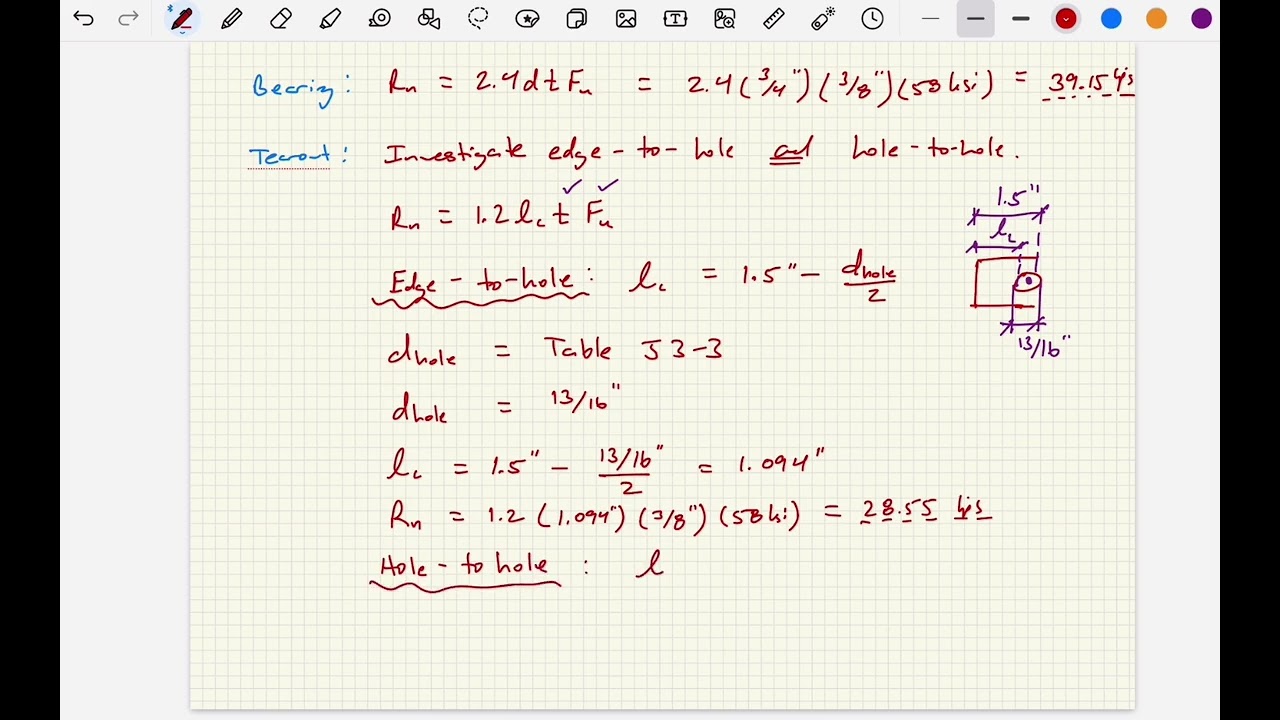 Bearing: Rn = 2.4dtFu = 2.4(3/4")(3/8")(58ksi) = 39.15kips
Tearout: Investigate edge-to-hole and hole-to-hole.
Rn = 1.2lctFu
Edge-to-hole: lc = 1.5" - dhole/2
dhole = Table J3-3
dhole = 13/16"
lc = 1.5" - 13/16"/2 = 1.094"
Rn = 1.2(1.094")(3/8")(58ksi) = 28.55 kips
Hole-to hole: l
1.5"
lc
13/16"